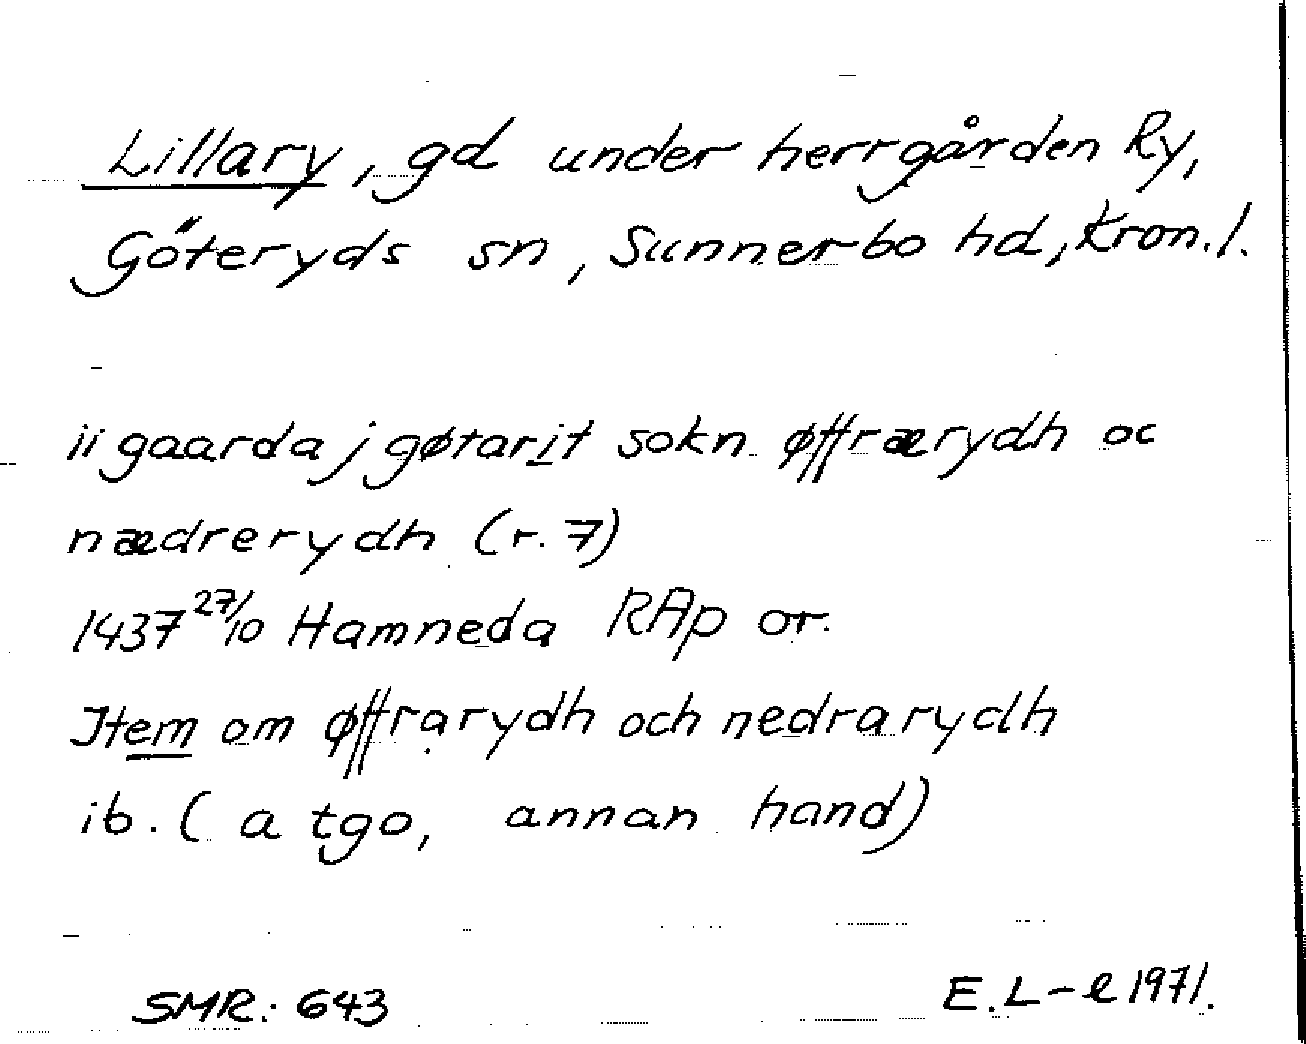 Lillary, gd under herrgården Ry,
Göteryds sn, Sunnerbo hd, Kron. l.
ii gaarda j gøtarit sokn øffrærydh oc
nædrerydh (r. 7)
1437 27/10 Hamneda RAp or.
Item om øffrarydh och nedrarydh
ib. (a tgo, annan hand)
SMR: 643
E. L-e 1971.